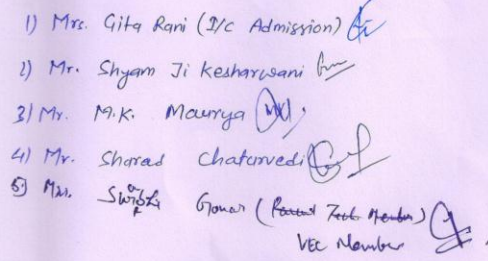 1) Mrs. Gita Rani (I/c Admission)
2) Mr. Shyam Ji Kesharwani
3) Mr. M.K. Maurya
4) Mr. Sharad Chaturvedi
5) Mrs. (Parent Member)
VEC Member